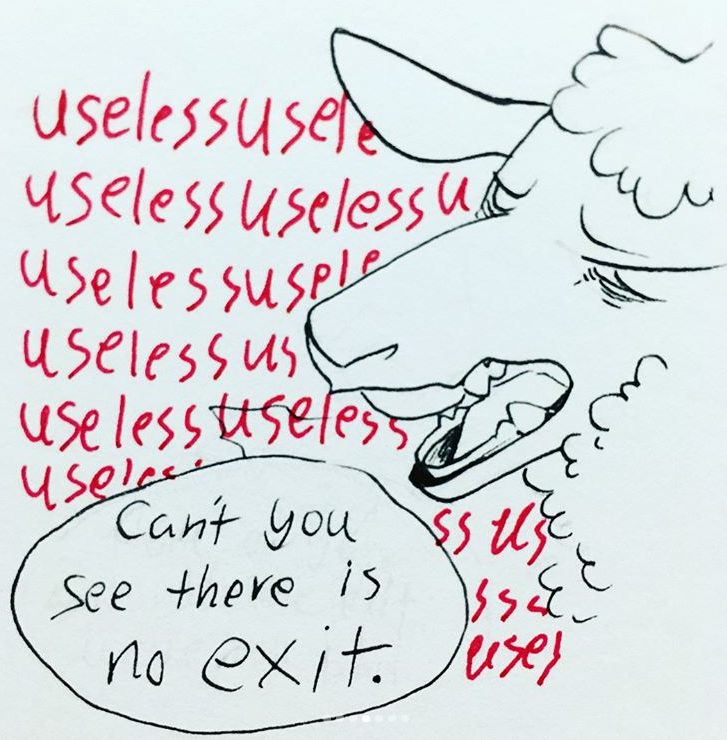 uselessusele
uselessuselessu
uselessusele
uselessus
uselessuseless
useless
ss us
ss
uses
Can't you
see there is
no exit.